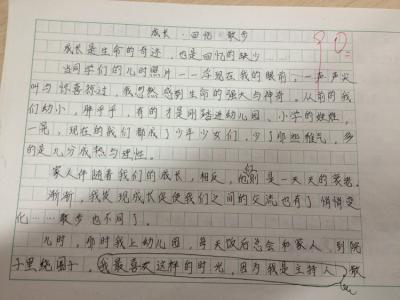 成长·回忆·散步
90
成长是生命的奇迹，也是回忆的缺少……
当同学们的儿时照片一一浮现在我的眼前，一声声尖
叫与惊喜掠过，我忽然感到生命的强大与神奇。从前的我
们幼小，胖乎乎，有的才是刚踏进幼儿园、小学的娃娃，
一晃，现在的我们都成了少年少女们，少了那些稚气，多
的是几分成熟与理性。
家人伴随着我们的成长，相反，他们则是一天天的衰老。
渐渐，我发现成长促使我们之间的交流也有了悄悄变
化……散步也不同了。
儿时，那时我上幼儿园，每天饭后总会和家人到院
子里绕圈子，我最喜欢这样的时光，因为我是主持人，散